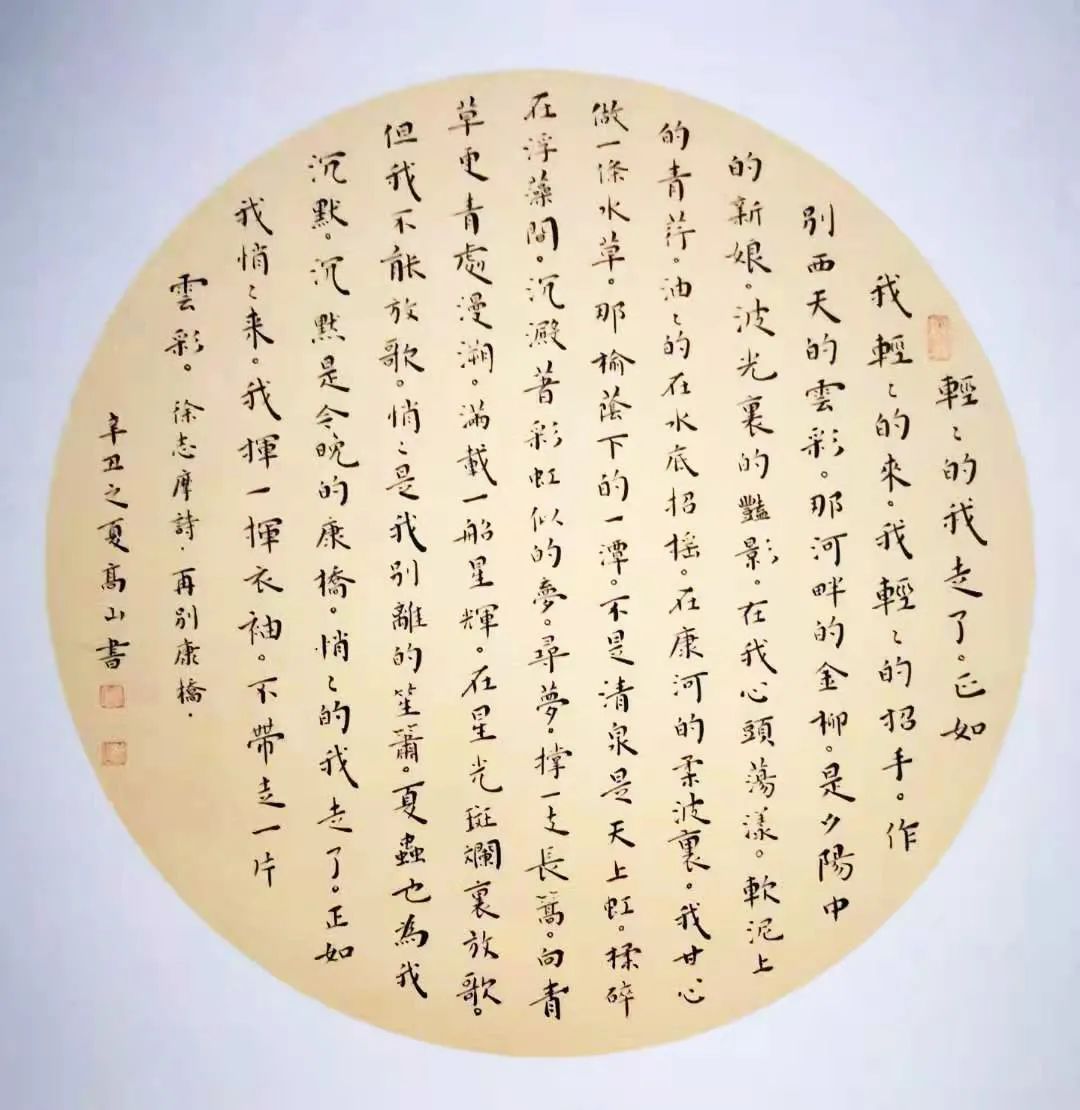 輕〻的我走了。正如
我輕〻的來。我輕〻的招手。作
別西天的雲彩。那河畔的金柳。是夕陽中
的新娘。波光裏的豔影。在我心頭蕩漾。軟泥上
的青荇。油〻的在水底招搖。在康河的柔波裏。我甘心
做一條水草。那榆蔭下的一潭。不是清泉是天上虹。揉碎
在浮藻間。沉澱著彩虹似的夢。尋夢。撑一支長篙。向青
草更青處漫溯。滿載一船星輝。在星光斑斕裏放歌。
但我不能放歌。悄〻是我別離的笙簫。夏蟲也為我
沉默。沉默是今晚的康橋。悄〻的我走了。正如
我悄〻来。我揮一揮衣袖。不帶走一片
雲彩。徐志摩詩．再別康橋．
辛丑之夏高山書